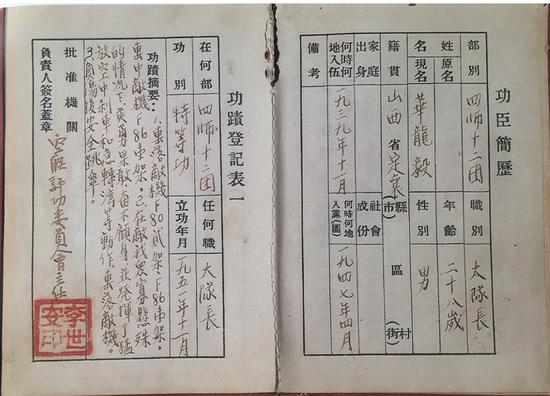 功臣簡歷
部別 四師十二团 職別 大隊長
姓名 原名 現名 華龍毅 年齡 二十八歲 性別 男
籍貫 山西省定襄縣(市) 區 村(街)
家庭出身 社會成份
何時何地入伍 一九三九年十一月 何時何地入黨(團) 一九四七年四月
備考
功蹟登記表一
在何部 四師十二团 任何職 大隊長
功別 特等功 立功年月 一九五一年十一月
功蹟摘要：1.击落敵機F80貳架、F86壹架。
击中敵機F86壹架。2.在敵我眾寡懸殊
的情况下英勇果敢奋不顧身並發揮了猛
放空中刹車和急轉湾等動作击落敵機。
3.負傷後安全跳傘。
批准機關 空联評功委員會主任
負責人簽名蓋章
李世安印